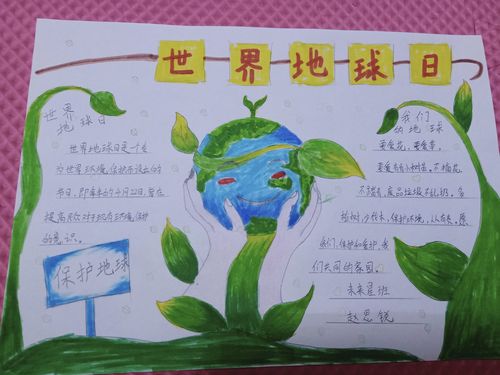 世界地球日
世界
地球日
世界地球日是一个专
为世界环境保护而设立的
节日,即每年的4月22日,旨在
提高民众对于现有环境保护
的意识。
保护地球
我们
的地球
要爱花,要爱草,
要爱青青小树苗。不摘花
不踏草,食品垃圾不乱扔。多
植树,少伐木,保护环境,从我来。愿
我们,保护和爱护,我
们共同的家园。
未来星班
赵思锐